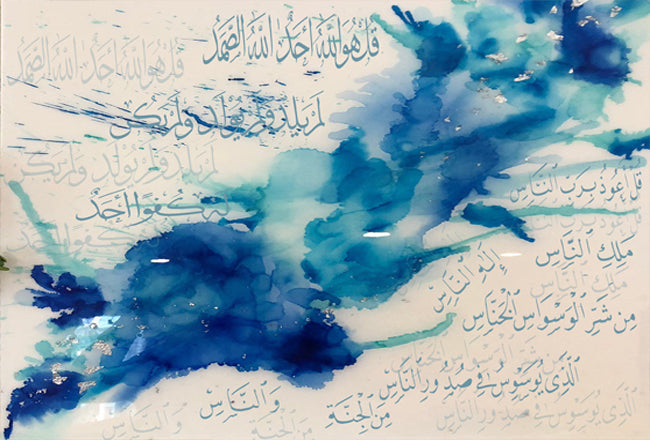 قُلْ هُوَ اللَّهُ أَحَدٌ اللَّهُ الصَّمَدُ
قُلْ هُوَ اللَّهُ أَحَدٌ اللَّهُ الصَّمَدُ
لَمْ يَلِدْ وَلَمْ يُولَدْ وَلَمْ يَكُن
لَمْ يَلِدْ وَلَمْ يُولَدْ وَلَمْ يَكُن
لَهُ كُفُوًا أَحَدٌ
كُفُوًا أَحَدٌ
قُلْ أَعُوذُ بِرَبِّ ٱلنَّاسِ
مَلِكِ ٱلنَّاسِ إِلَٰهِ ٱلنَّاسِ
مَلِكِ ٱلنَّاسِ
مِن شَرِّ ٱلْوَسْوَاسِ ٱلْخَنَّاسِ
مِن شَرِّ ٱلْوَسْوَاسِ ٱلْخَنَّاسِ
ٱلَّذِى يُوَسْوِسُ فِى صُدُورِ ٱلنَّاسِ
ٱلَّذِى يُوَسْوِسُ فِى صُدُورِ ٱلنَّاسِ
مِنَ ٱلْجِنَّةِ وَٱلنَّاسِ
مِنَ ٱلْجِنَّةِ وَٱلنَّاسِ